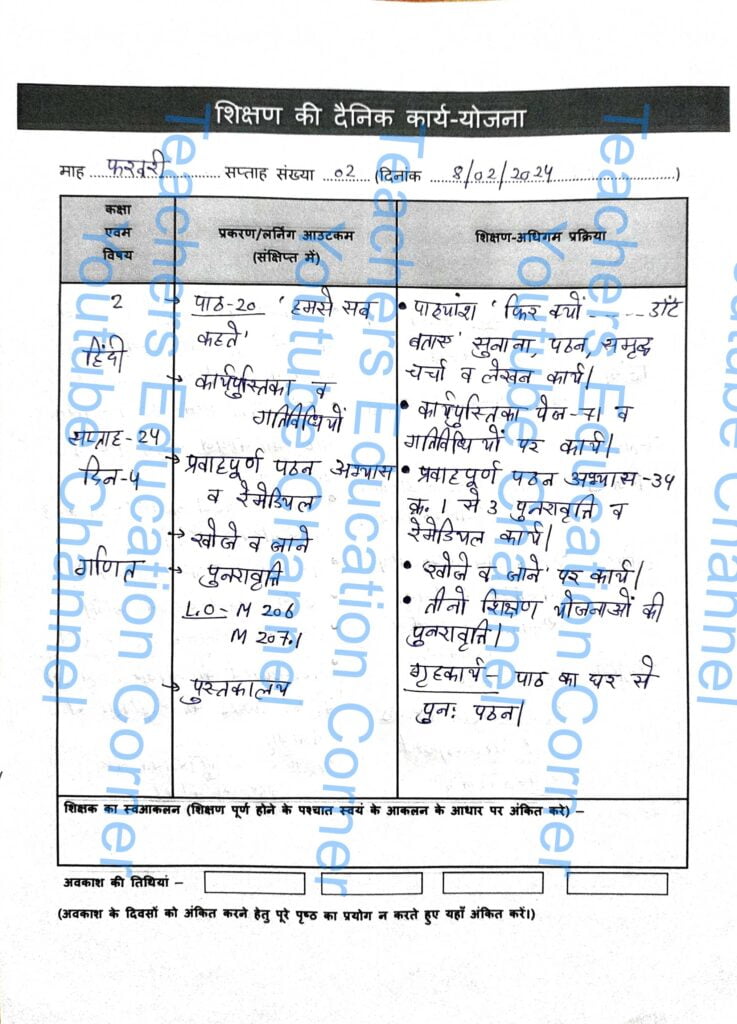 शिक्षण की दैनिक कार्य-योजना
माह ........फरवरी............ सप्ताह संख्या ...02... (दिनांक ....8/02/2024............................)
कक्षा
एवम
विषय
प्रकरण/लर्निंग आउटकम
(संक्षिप्त में)
शिक्षण-अधिगम प्रक्रिया
2
हिंदी
सप्ताह-24
दिन-4
गणित
→ पाठ-20 'हमसे सब
कहते'
→ कार्यपुस्तिका व
गतिविधियों
→ प्रवाहपूर्ण पठन अभ्यास
व रेमेडियल
→ खोजे व जाने
→ पुनरावृत्ति
L.O- M 206
M 207.1
→ पुस्तकालय
• पाठ्यांश 'फिर क्यों ---- डाँट
बताए' सुनाना, पठन, समृद्ध
चर्चा व लेखन कार्य।
• कार्यपुस्तिका पेज-71 व
गतिविधियों पर कार्य।
• प्रवाहपूर्ण पठन अभ्यास-34
क्र. 1 से 3 पुनरावृत्ति व
रेमेडियल कार्य।
• 'खोजे व जाने' पर कार्य।
• तीनो शिक्षण योजनाओं की
पुनरावृत्ति।
गृहकार्य- पाठ का घर से
पुनः पठन।
शिक्षक का स्वआकलन (शिक्षण पूर्ण होने के पश्चात स्वयं के आकलन के आधार पर अंकित करे) –
अवकाश की तिथियां –
(अवकाश के दिवसों को अंकित करने हेतु पूरे पृष्ठ का प्रयोग न करते हुए यहाँ अंकित करें।)
Teachers Education Corner
Youtube Channel
Teachers Education Corner
Youtube Channel
Teachers Education Corner
Youtube Channel